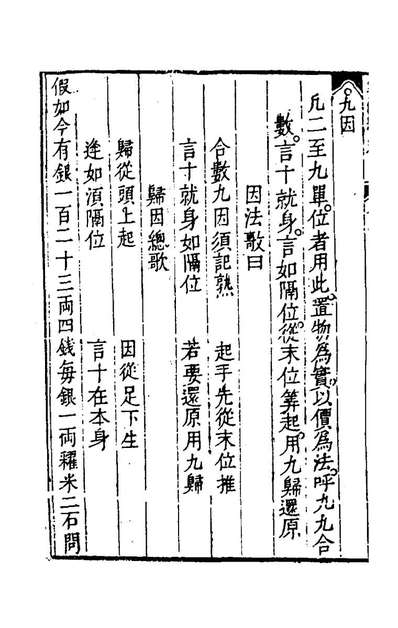 九因
凡二至九單位者用此置物為實以價為法呼九九合
數言十就身言如隔位從末位筭起用九歸還原
因法歌曰
合數九因須記熟 起手先從末位推
言十就身如隔位 若要還原用九歸
歸因總歌
歸從頭上起 因從足下生
逢如須隔位 言十在本身
假如今有銀一百二十三兩四錢每銀一兩糴米二石問